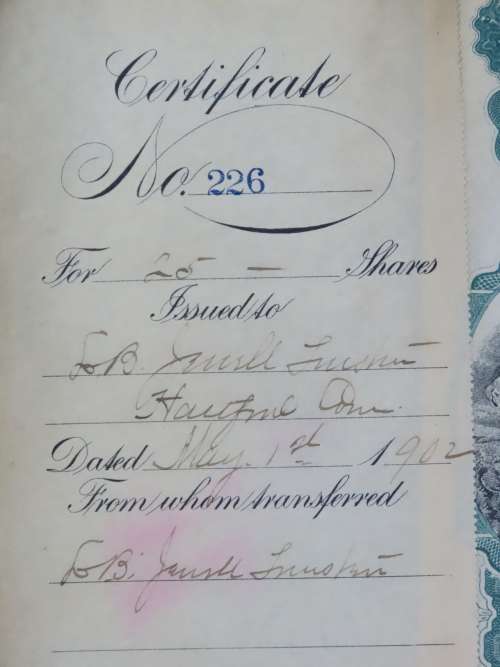 Certificate
No. 226
For 25 — Shares
Issued to
B. Jewell Trustee
Hartford Conn.
Dated May 1st 1902
From whom transferred
B. Jewell Trustee